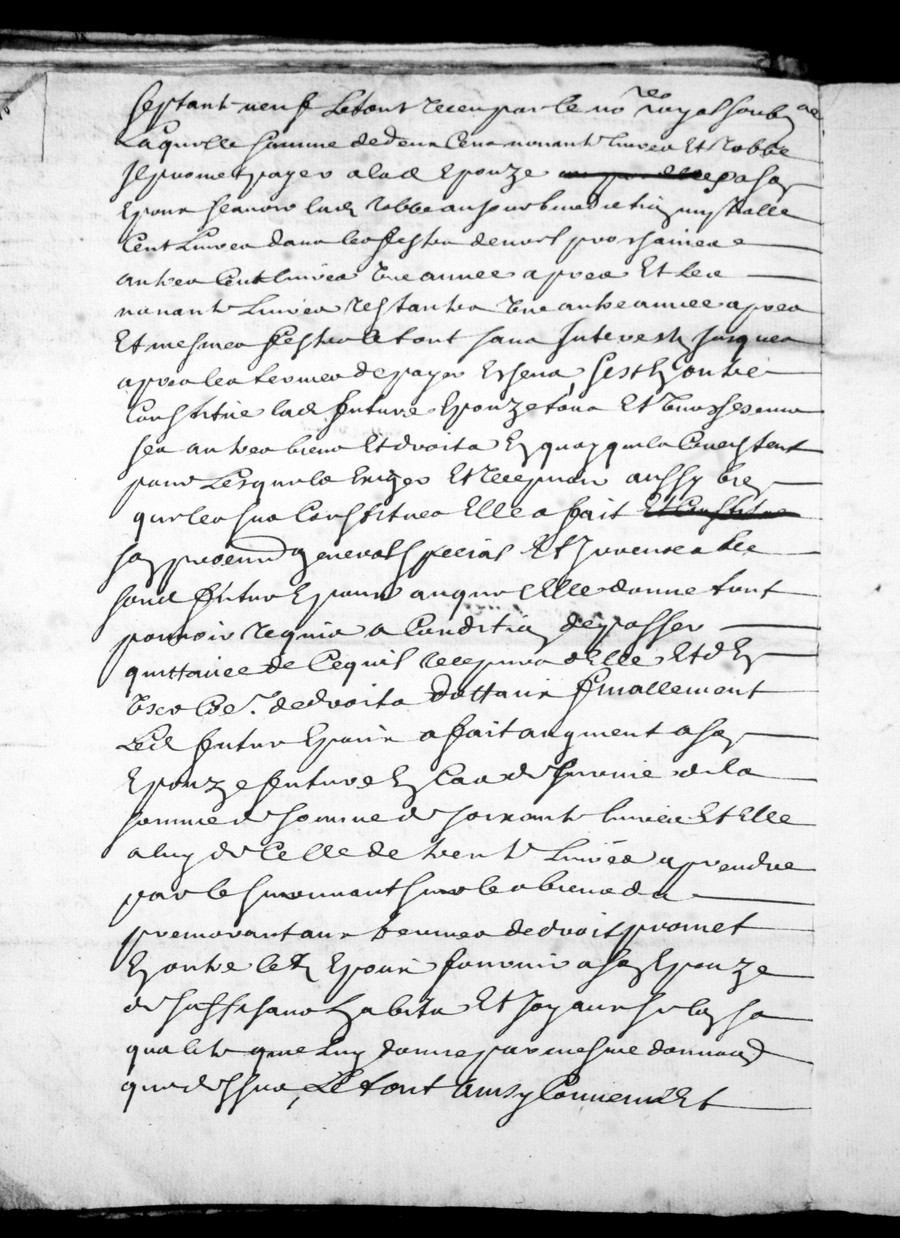 septante neuf Letout receu par le no.re royal soub.né
Laquelle somme de deux cens nonante livres Et Robbe
Il promet payer a lad Epouze a sa
Epoux Scavoir lad Robbe au jour benediction nuptialle
Cent Livres dans les festes de noel prochaines
autres Cent livres Une annee apres Et Les
nonante Livres restantes Une autre annee apres
Et mesmes festes le tout sans Interest Jusques
apres les termes de payes Escheus, Sest En outre
Constitué lad future Epouze tous Et Uns chescuns
ses autres biens Et droits En quoy quils Consistent
pour Lesquels Exiger Et recepvoir aussy bien
que les sus Constitues Elle a fait
son procureur general special Et Irrevocable
sond futur Epoux auquel Elle donne tout
pouvoir requis a Condition de passer
quittance de Cequil recepvra delle Et dEn
de droits dottaux finallement
Led futur Epoux a fait augment a sa
Epouze future En Cas de survie de la
somme de somme de soixante livres Et Elle
a luy de Celle de trente Livres a prendre
par le survivant sur les biens du
premourant aux termes de droit promet
En outre led Epoux fournir a sa Epouze
de suffisans habits Et Joyaux selon sa
qualité que luy donne par mesme donnaon
que dessus, Le tout ainsy Convenu Et